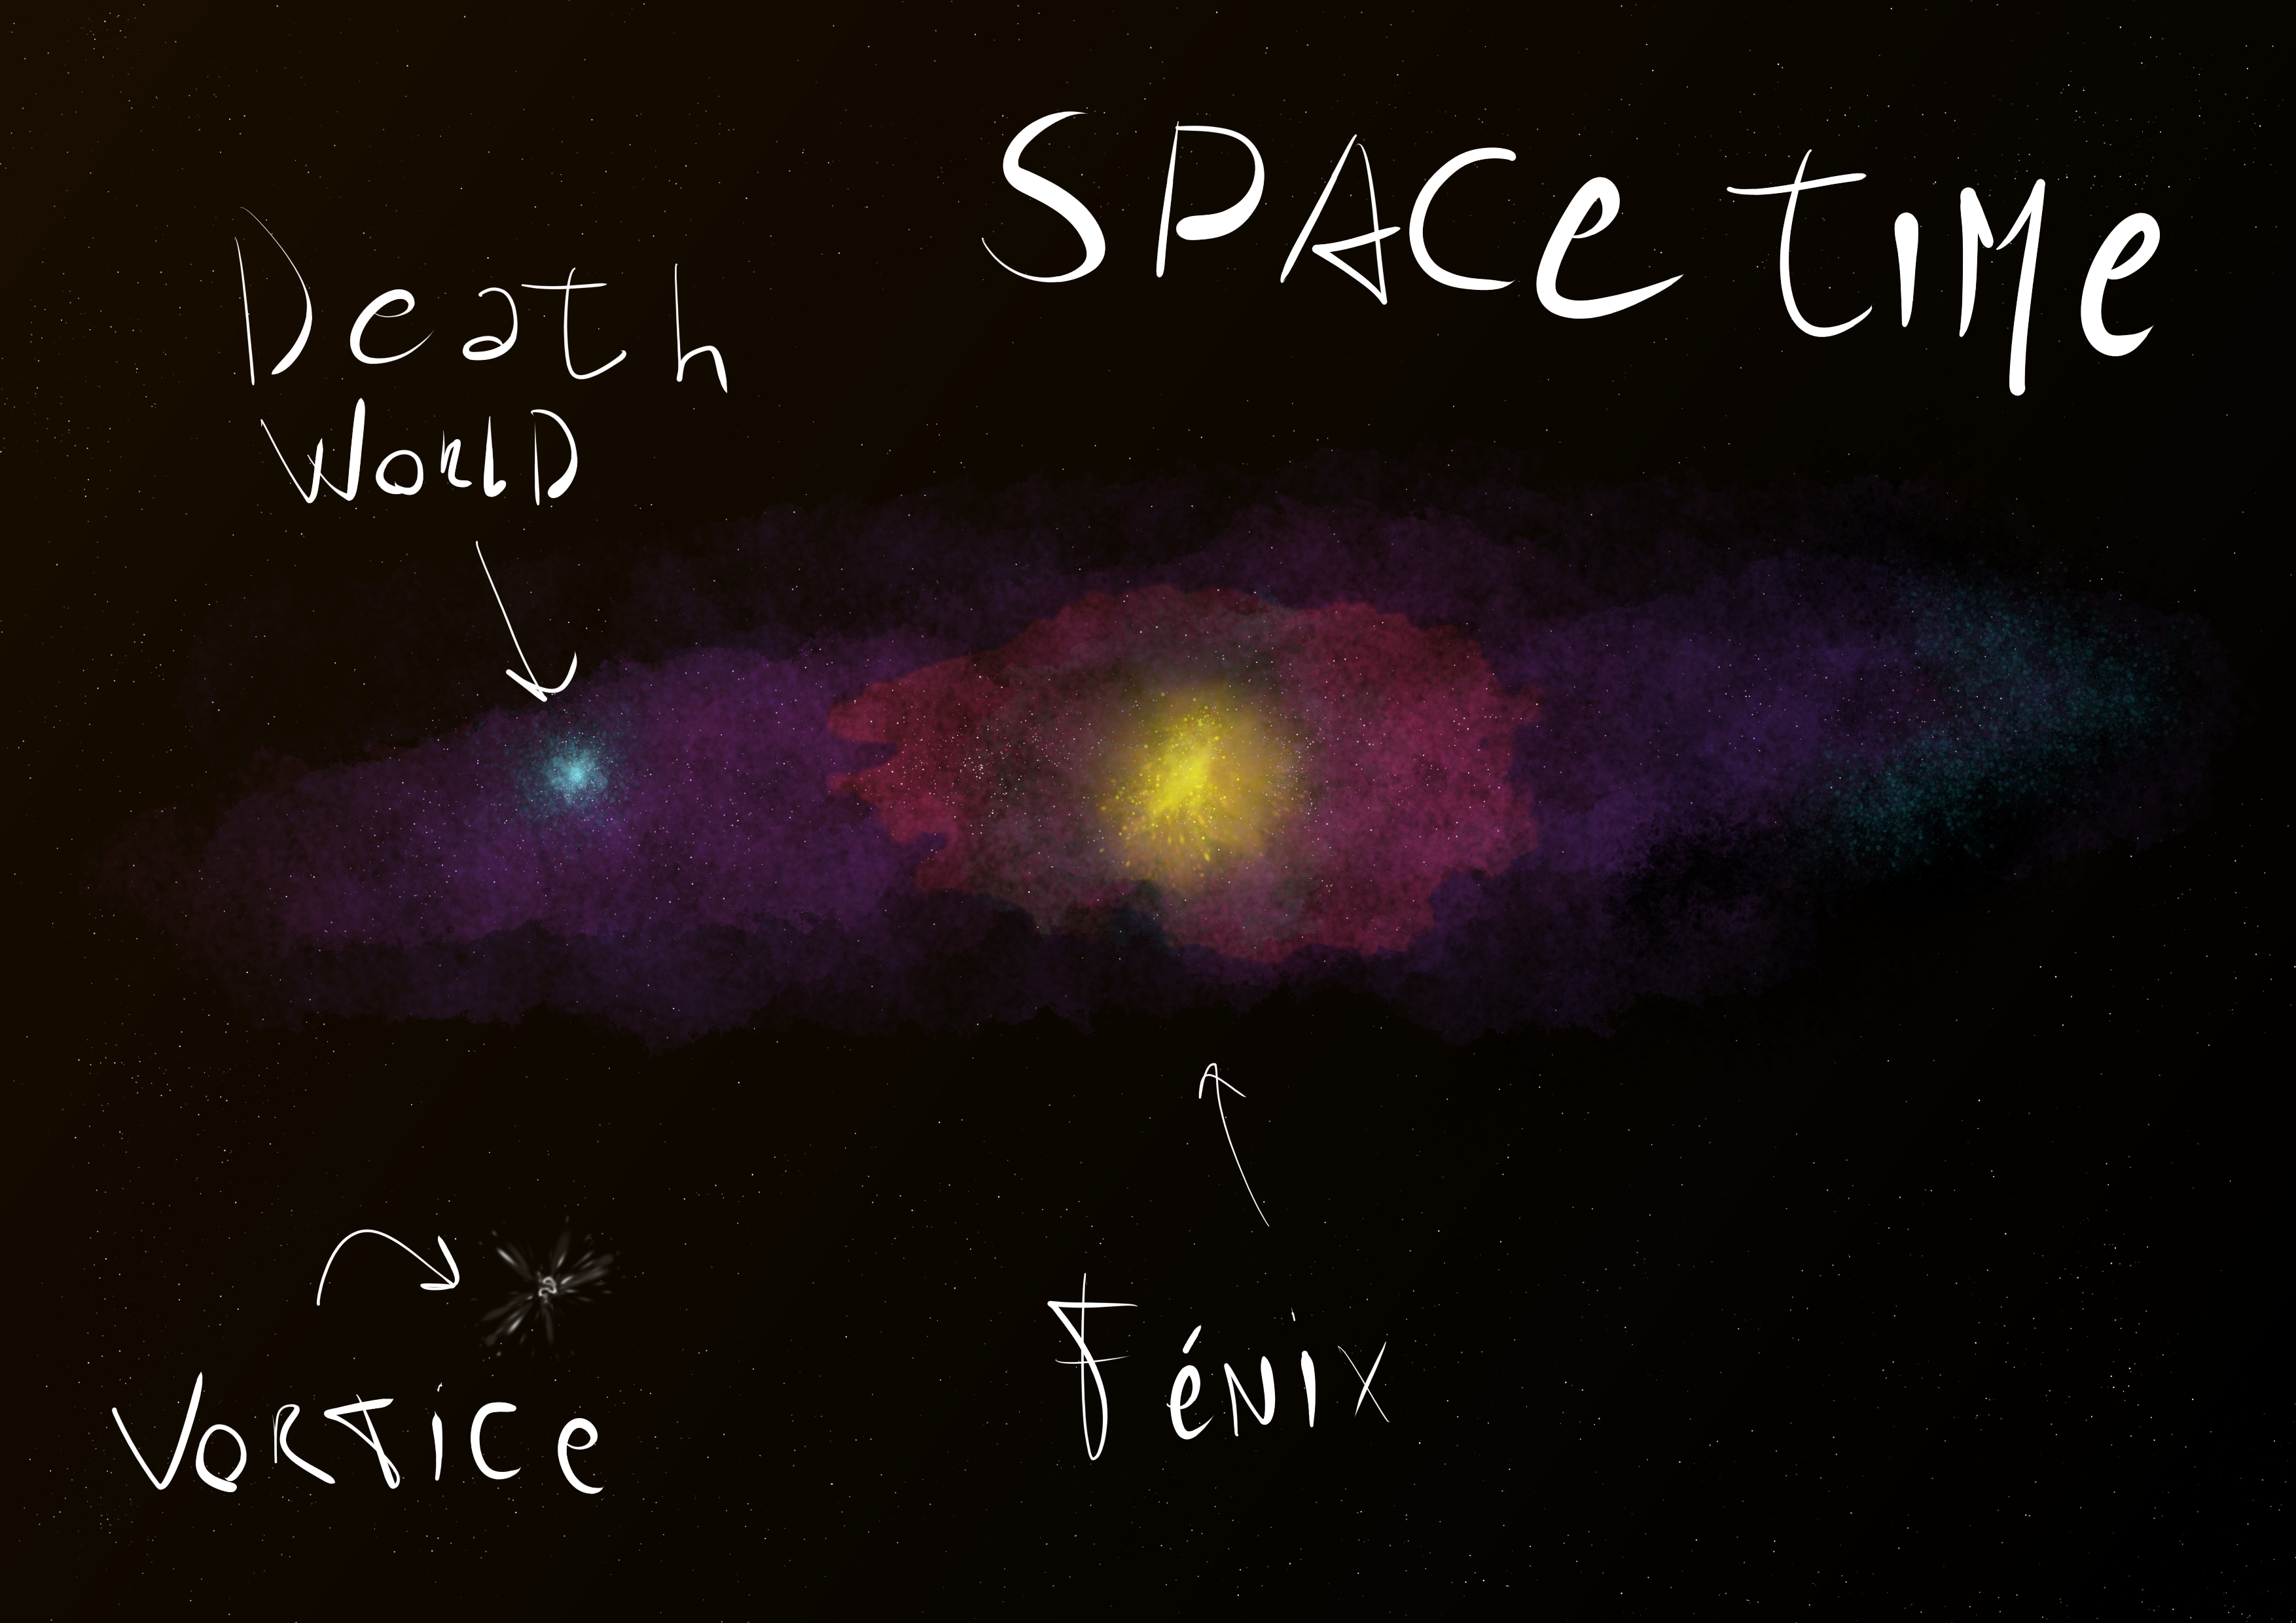 SPACe tiMe
Death
WorlD
Vortice
Fénix